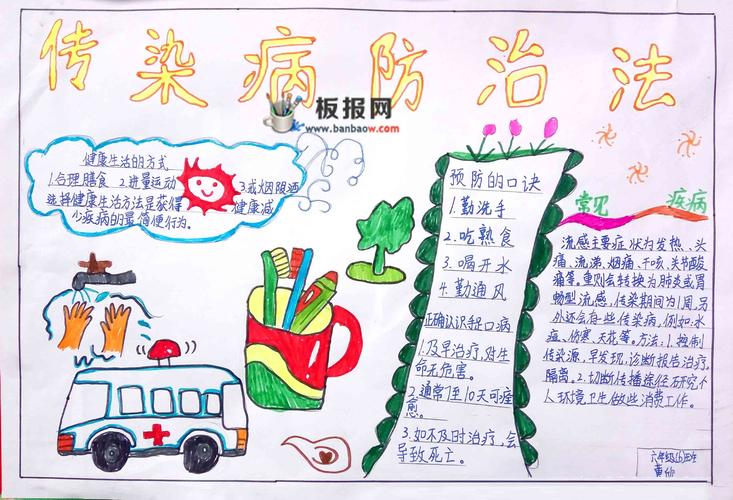 传染病防治法
板报网
www.banbaow.com
健康生活的方式
1.合理膳食 2.进量运动
3.戒烟限酒
选择健康生活方法是获得
健康减
少疾病的最简便行为。
预防的口诀
1.勤洗手
2.吃熟食
3.喝开水
4.勤通风
正确认识轻口病
1.及早治疗,对生
命无危害。
2.通常7至10天可痊
愈。
3.如不及时治疗,会
导致死亡。
常见 疾病
流感主要症状为发热、头
痛、流涕、烟痛、干咳、关节酸
痛等。重则会转换为肺炎或胃
肠型流感,传染期间为1周,另
外还会有些传染病,例如:水
痘、伤寒、天花等。方法:1.控制
传染源、早发现、诊断报告治疗、
隔离。2.切断传播途径
人环境卫生做些消费工作。
六年级(6)班
黄